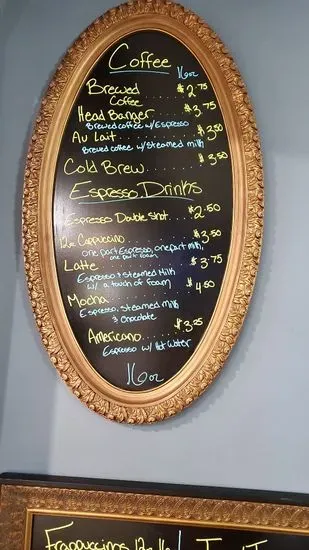 Coffee
16oz
Brewed Coffee ... $2.75
Head Banger ... $3.75
Brewed coffee w/Espresso
Au Lait ... $3.50
Brewed coffee w/steamed milk
Cold Brew .... $3.50
Espresso Drinks
Espresso Double Shot ... $2.50
12oz Cappuccino ... $3.50
one part Espresso, one part milk,
one part foam
Latte ... $3.75
Espresso & Steamed Milk
w/ a touch of foam
Mocha ... $4.50
Espresso, steamed milk
& chocolate
Americano ... $3.25
Espresso w/ Hot Water
16oz
Frappuccinos